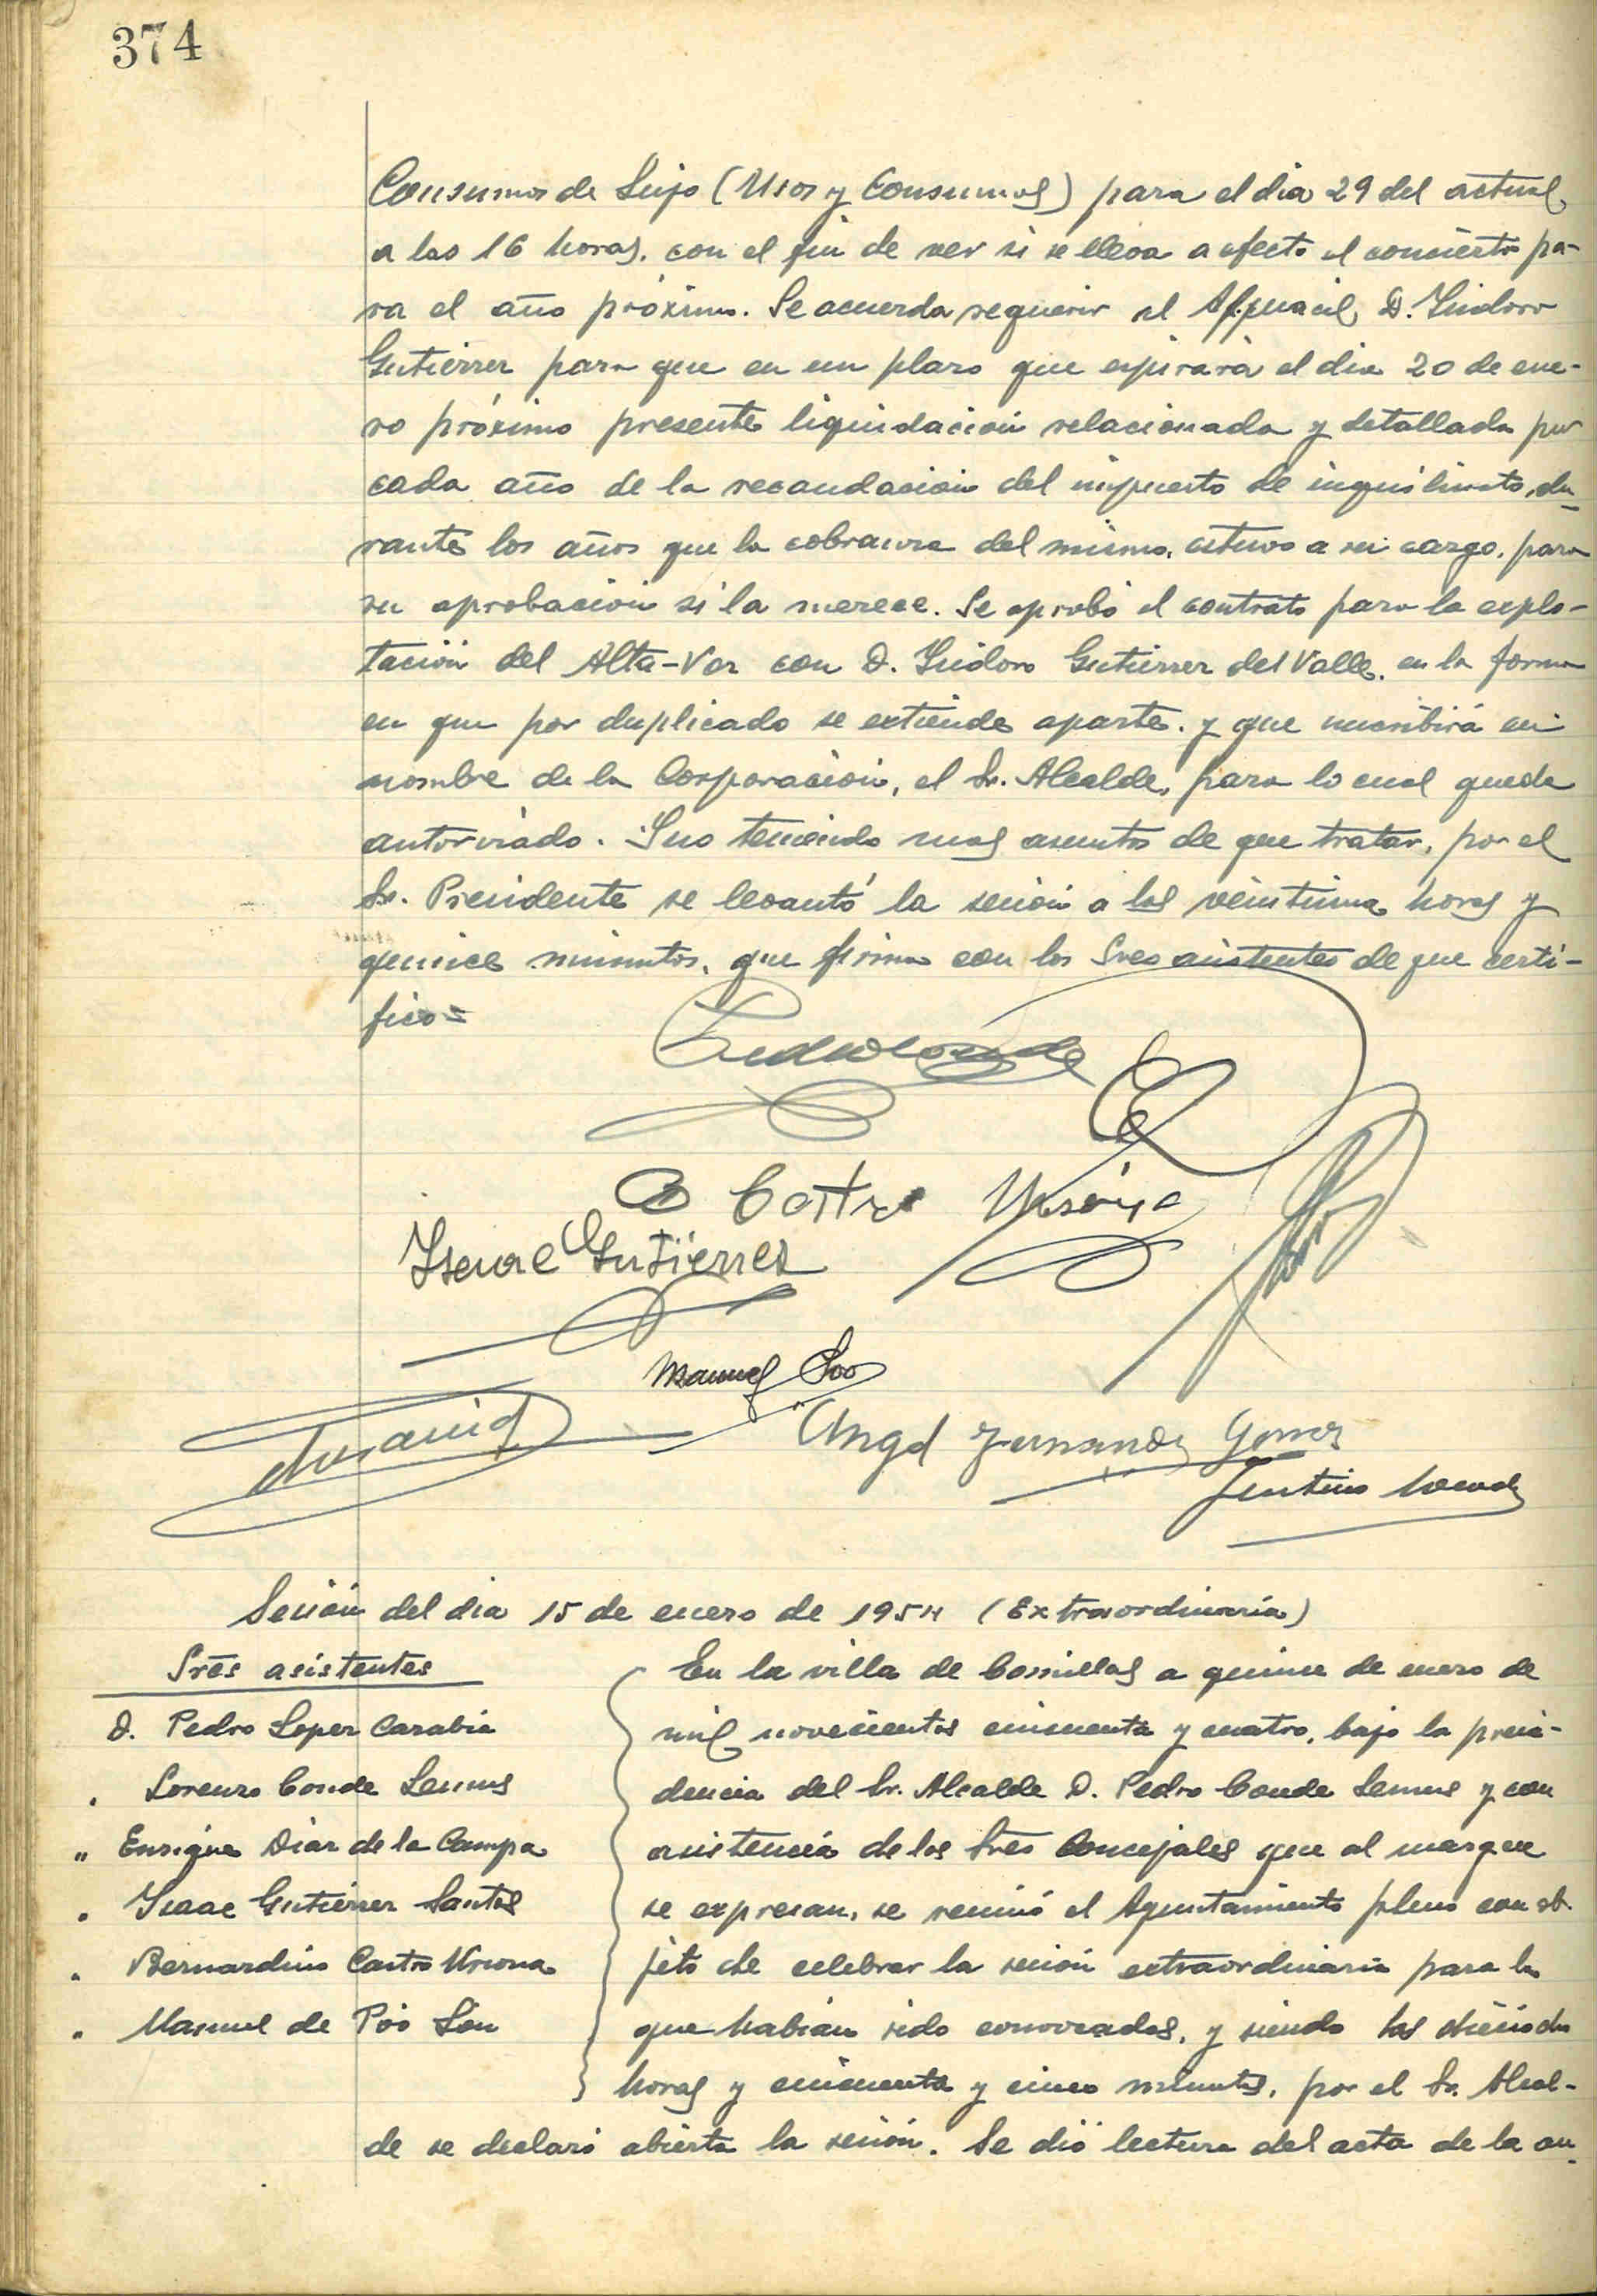 374
Consumos de Lujo (Usos y Consumos) para el dia 29 del actual,
a las 16 horas, con el fin de ver si se lleva a efecto el concierto pa-
ra el año próximo. Se acuerda requerir al Alguacil, D. Isidoro
Gutierrez para que en un plazo que expirará el dia 20 de ene-
ro próximo presente liquidación relacionada y detallada por
cada año de la recaudación del impuesto de inquilinato, du-
rante los años que la cobranza del mismo, estuvo a su cargo, para
su aprobación si la merece. Se aprobó el contrato para la explo-
tación del Alta-Voz con D. Isidoro Gutierrez del Valle, en la forma
en que por duplicado se extiende aparte, y que suscribirá en
nombre de la Corporación, el Sr. Alcalde, para lo cual queda
autorizado. Y no teniendo mas asuntos de que tratar, por el
Sr. Presidente se levantó la sesión a las veintiuna horas y
quince minutos, que firma con los Sres asistentes de que certi-
fico=
Pedro Conde
B Castro Ursona
Isaac Gutierrez
Manuel Poo
Angel Fernandez Gomez
Sesión del dia 15 de enero de 1954 (Extraordinaria)
Sres asistentes
D. Pedro Lopez Carabia
" Lorenzo Conde Lemus
" Enrique Diaz de la Campa
" Isaac Gutierrez Santos
" Bernardino Castro Ursona
" Manuel de Poo
En la villa de Comillas a quince de enero de
mil novecientos cincuenta y cuatro, bajo la presi-
dencia del Sr. Alcalde D. Pedro Conde Lemus y con
asistencia de los Sres Concejales que al margen
se expresan, se reunió el Ayuntamiento pleno con ob-
jeto de celebrar la sesión extraordinaria para la
que habian sido convocados, y siendo las dieciocho
horas y cincuenta y cinco minutos, por el Sr. Alcal-
de se declaró abierta la sesión. Se dió lectura del acta de la an-